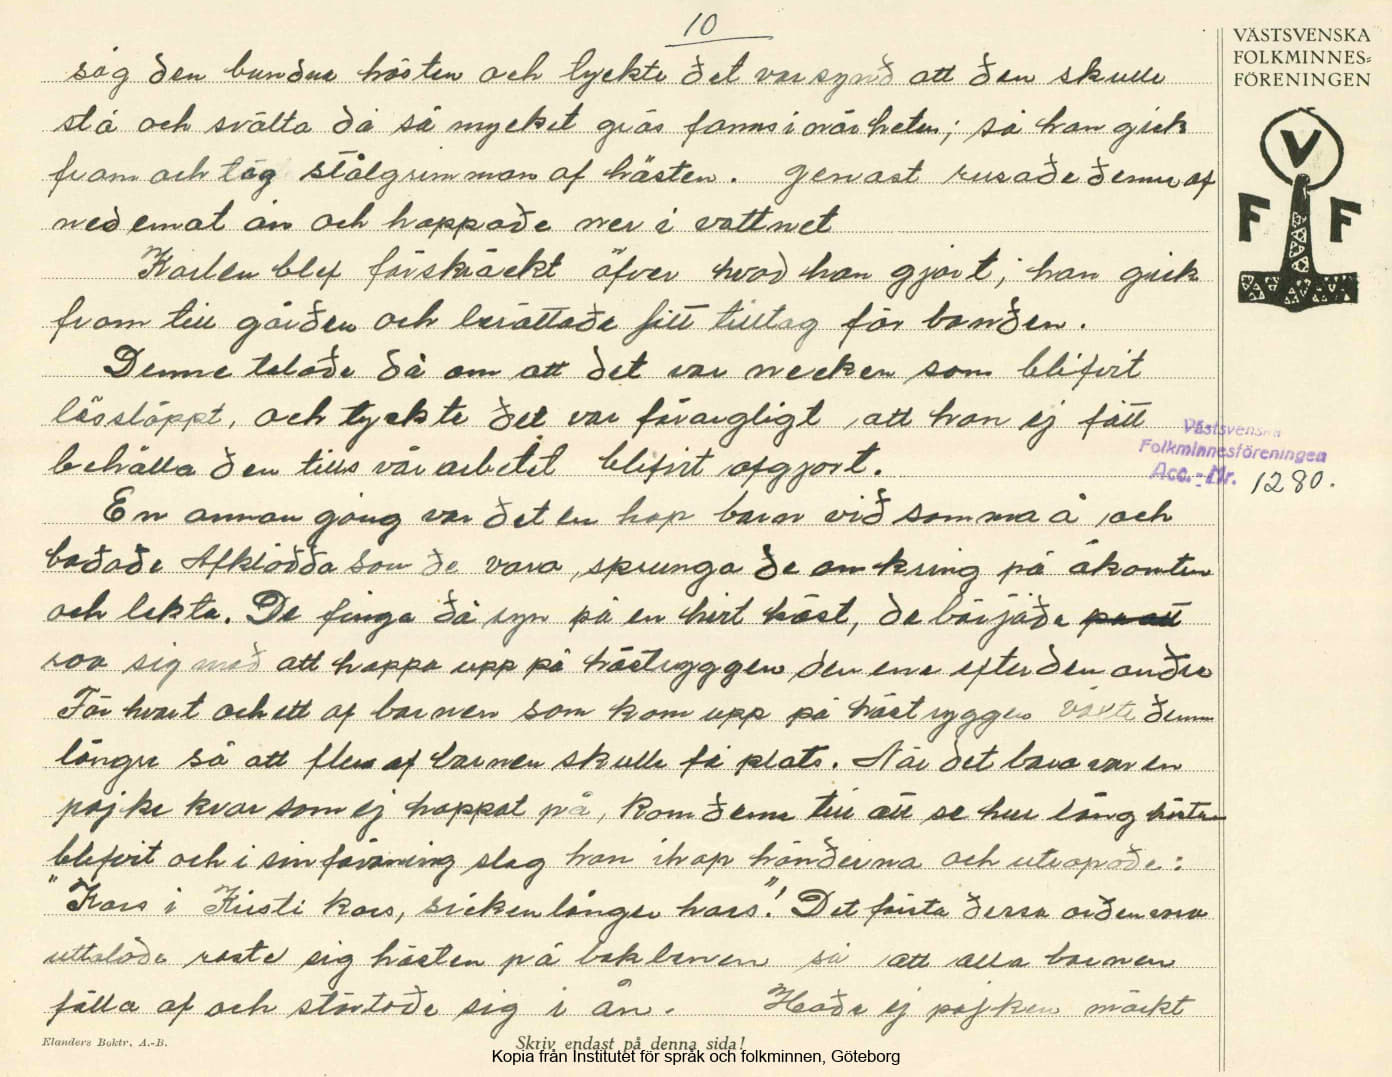 10
VÄSTSVENSKA
FOLKMINNES=
FÖRENINGEN
V
F F
såg den bundne hästen och tyckte det var synd att den skulle
stå och svälta då så mycket gräs fanns i närheten; så han gick
fram och tog stålgrimman af hästen. Genast rusade denne af
ned emot ån och hoppade ner i vattnet
Karlen blef förskräckt öfver hvad han gjort; han gick
fram till gården och berättade sitt tilltag för bonden.
Denne talade då om att det var necken som blifvit
lössläppt, och tyckte det var förargligt, att han ej fått
behålla den tills vårarbetet blifvit afgjort.
Västsvenska
Folkminnesföreningen
Acc.-Nr. 1280.
En annan gång var det en hop barn vid samma å, och
badade Afklädda som de vara, sprunga de omkring på åkanten
och lekte. De finga då syn på en hvit häst, de började på att
roa sig med att hoppa upp på hästryggen den ene efter den andra
För hvart och ett af barnen som kom upp på hästryggen växte denne
längre så att flera af barnen skulle få plats. När det bara var en
pojke kvar som ej hoppat på, kom denne till att se hur lång hästen
blifvit och i sin förvåning slog han ihop händerna och utropade:
"Kors i Kristi kors, sicken långer hors"! Det första dessa orden voro
uttalade reste sig hästen på bakbenen så att alla barnen
fälla af och störtade sig i ån. Hade ej pojken märkt
Elanders Boktr. A.-B.
Skriv endast på denna sida!
Kopia från Institutet för språk och folkminnen, Göteborg